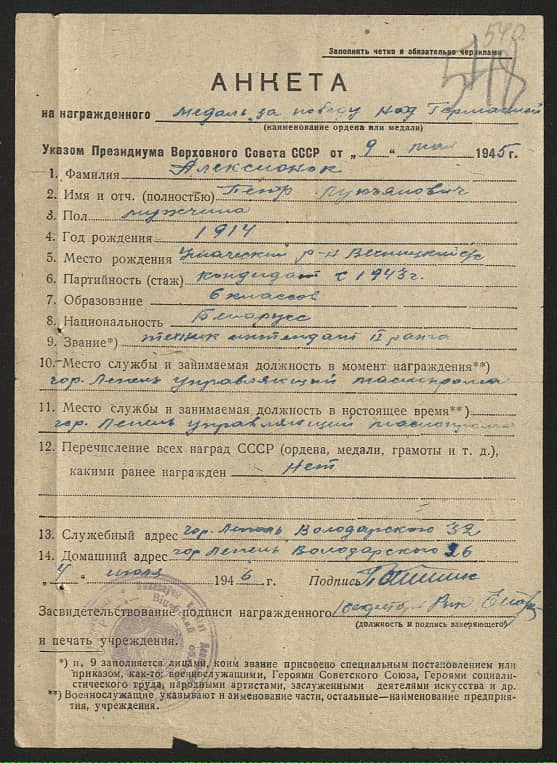 540.
518
Заполнять четко и обязательно чернилами
АНКЕТА
на награжденного медаль за победу над Германией
(наименование ордена или медали)
Указом Президиума Верховного Совета СССР от „9“ мая 1945 г.
1. Фамилия Алексионок
2. Имя и отч. (полностью) Петр Лукьянович
3. Пол мужчина
4. Год рождения 1914
5. Место рождения Ушачский р-н Весницкий с/с
6. Партийность (стаж) кондидат с 1943 г.
7. Образовзние 6 классов
8. Национальность Беларусс
9. Звание*) техник интендант II ранга
10. Место службы и занимаемая должность в момент награждения**)
гор. Лепель управляющий маслопрома
11. Место службы и занимаемая должность в ностоящее время**)
гор. Лепель управляющий маслопрома
12. Перечисление всех наград СССР (ордена, медали, грамоты и т. д.),
какими ранее награжден нет
13. Служебный адрес гор. Лепель Володарского 32
14. Домашний адрес гор Лепель Володарского 26
„4“ июля 1946 г. Подпись
Засвидетельствование подписи награжденного
(должность и подпись заверяющего)
и печать учреждения.
*) п, 9 заполняется лицами, коим звание присвоено специальным постановлением или
приказом, как-то: военнослужащими, Героями Советского Союза, Героями социали-
стического труда, народными артистами, заслуженными деятелями искусства и др.
**) Военнослужащие указывают наименование части, остальные—наименование предприя-
тия, учреждения.